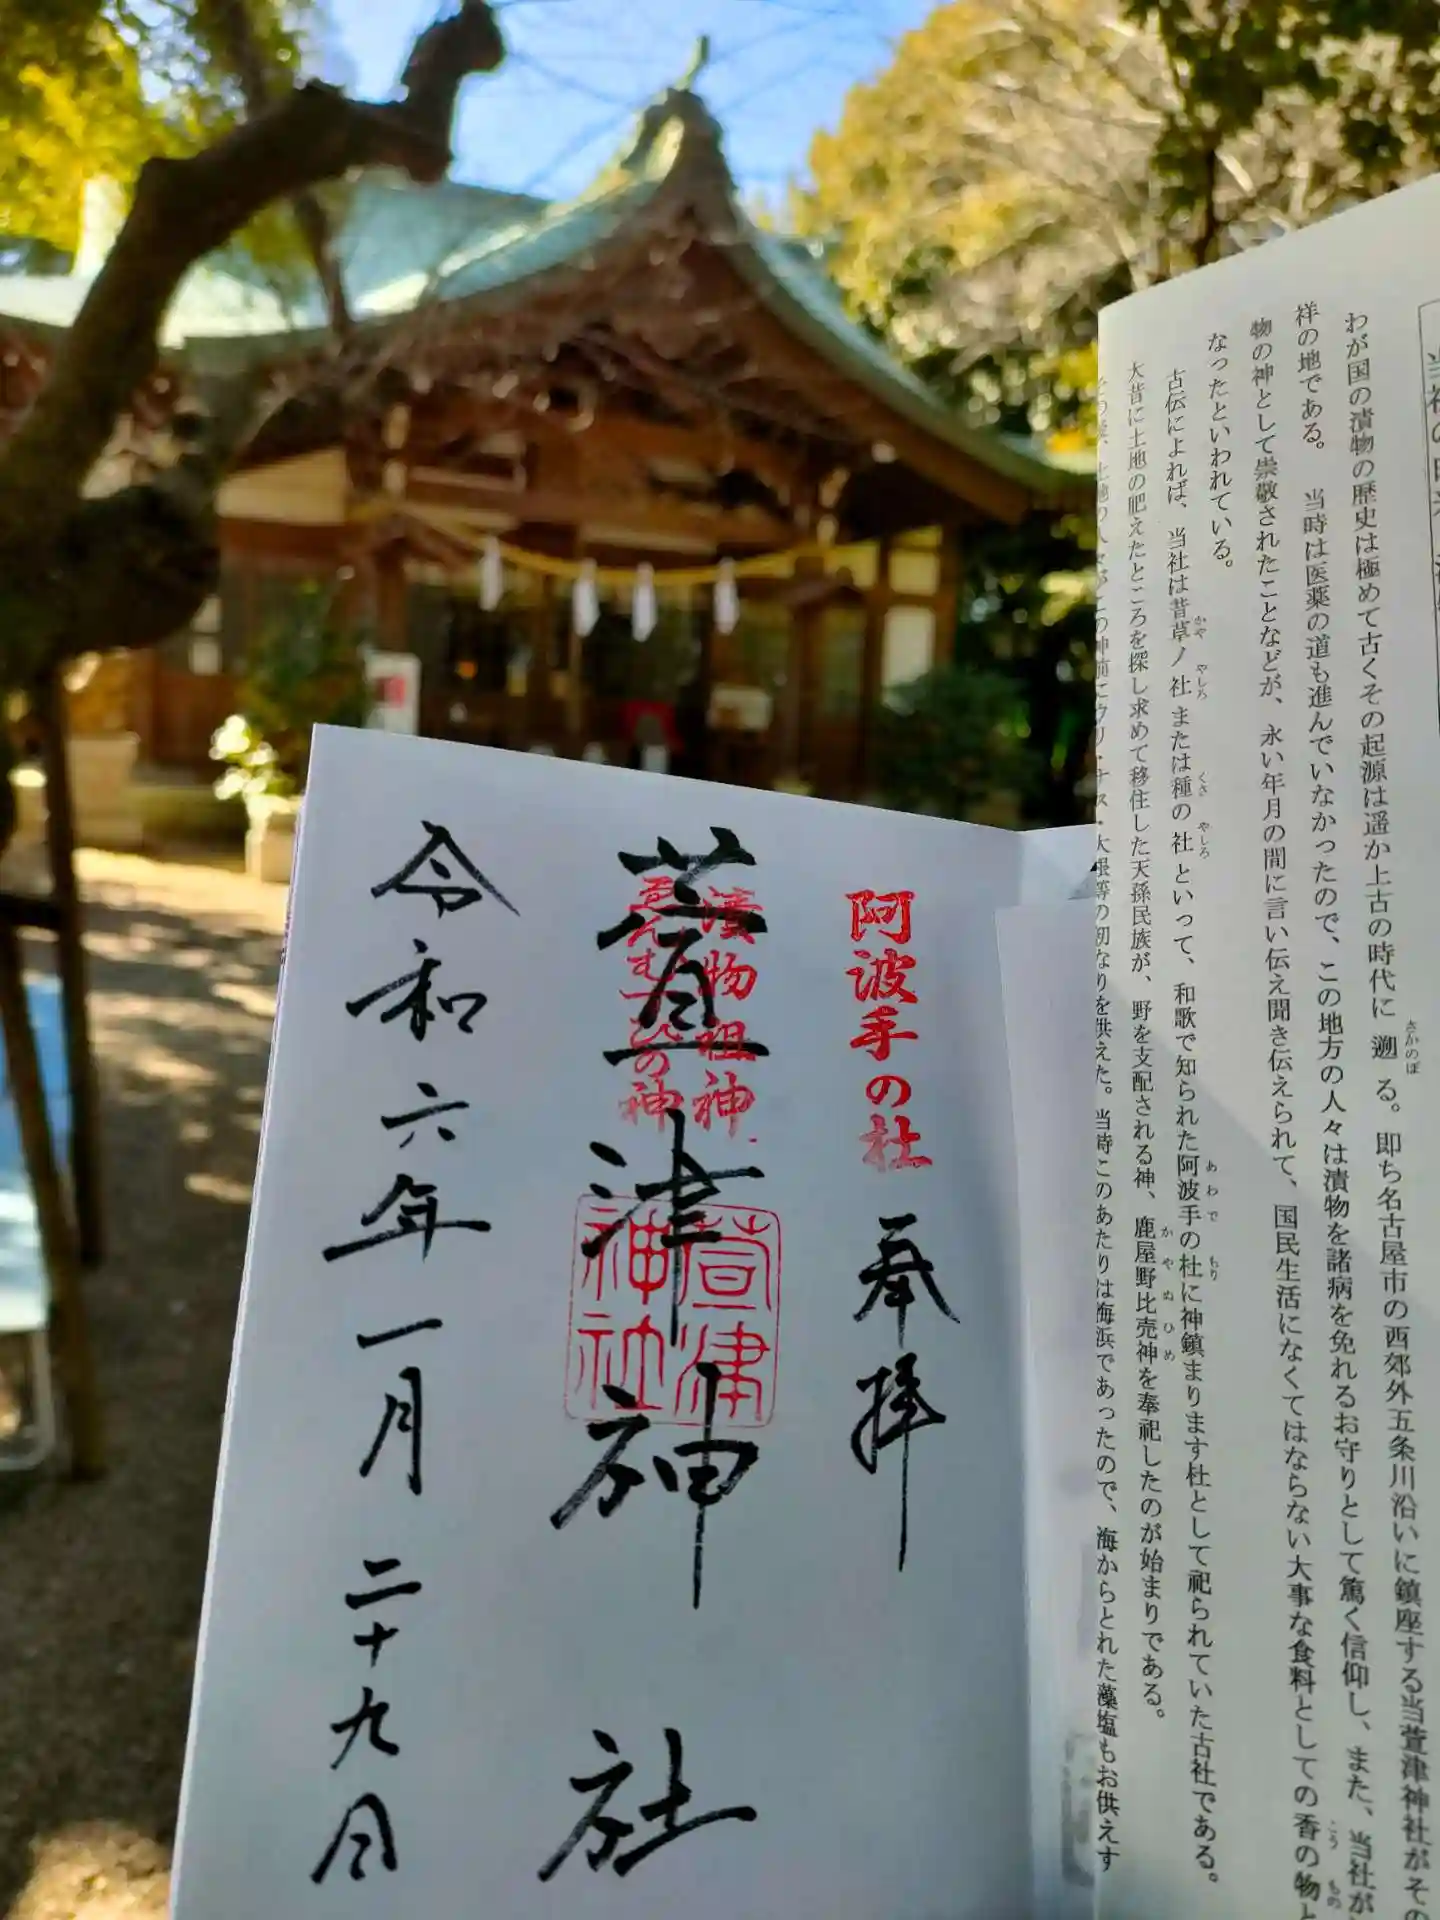 わが国の漬物の歴史は極めて古くその起源は遥か上古の時代に遡る。即ち名古屋市の西郊外五条川沿いに鎮座する当萱津神社がその
さかのぼ
祥の地である。　当時は医薬の道も進んでいなかったので、この地方の人々は漬物を諸病を免れるお守りとして篤く信仰し、また、当社が
物の神として崇敬されたことなどが、永い年月の間に言い伝え聞き伝えられて、国民生活になくてはならない大事な食料としての香の物と
こう もの
なったといわれている。
古伝によれば、当社は昔草ノ社または種の社といって、和歌で知られた阿波手の杜に神鎮まります杜として祀られていた古社である。
かや やしろ くさ やしろ あわで もり
大昔に土地の肥えたところを探し求めて移住した天孫民族が、野を支配される神、鹿屋野比売神を奉祀したのが始まりである。
かやぬひめ
大根等の初なりを供えた。当時このあたりは海浜であったので、海からとれた藻塩もお供えす
阿波手の社
奉拝
漬物祖神
ゑんむすひの神
萱津神社
萱津
神社
令和六年一月二十九日